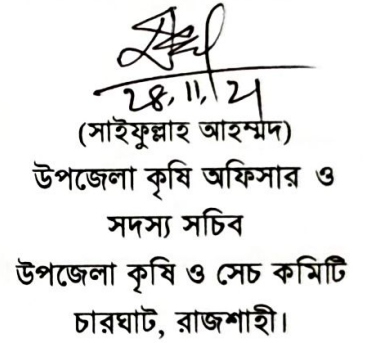 28.11.21
(সাইফুল্লাহ আহম্মদ)
উপজেলা কৃষি অফিসার ও
সদস্য সচিব
উপজেলা কৃষি ও সেচ কমিটি
চারঘাট, রাজশাহী।